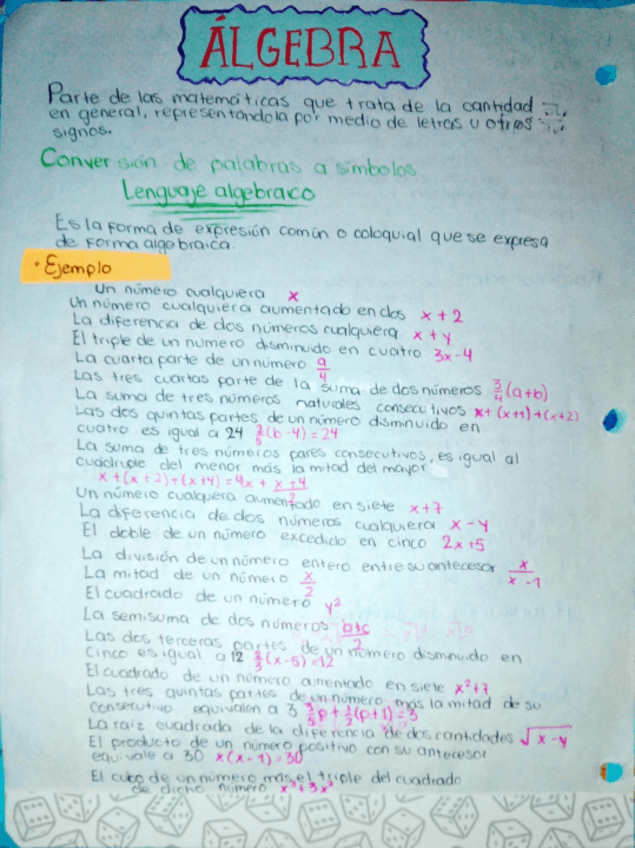 ÁLGEBRA
Parte de las matemáticas que trata de la cantidad
en general, representandola por medio de letras u otros
signos.
Conversión de palabras a símbolos
Lenguaje algebraico
Es la forma de expresión común o coloquial que se expresa
de forma algebraica.
· Ejemplo
Un número cualquiera x
Un número cualquiera aumentado en dos x + 2
La diferencia de dos números cualquiera x + y
El triple de un numero disminuido en cuatro 3x - 4
La cuarta parte de un número a/4
Las tres cuartas parte de la suma de dos números 3/4 (a+b)
La suma de tres números naturales consecutivos x + (x+1) + (x+2)
Las dos quintas partes de un número disminuido en
cuatro es igual a 24 2/5 (b-4) = 24
La suma de tres números pares consecutivos, es igual al
cuádruple del menor más la mitad del mayor
x + (x+2) + (x+4) = 4x + x+4/2
Un número cualquiera aumentado en siete x+7
La diferencia de dos números cualquiera x - y
El doble de un número excedido en cinco 2x+5
La división de un número entero entre su antecesor x/x-1
La mitad de un número x/2
El cuadrado de un número y²
La semisuma de dos números b+c/2
Las dos terceras partes de un número disminuido en
cinco es igual a 12 2/3 (x-5) = 12
El cuadrado de un número aumentado en siete x²+7
Las tres quintas partes de un número más la mitad de su
consecutivo equivalen a 3 3/5 p + 1/2 (p+1) = 3
La raíz cuadrada de la diferencia de dos cantidades √x-y
El producto de un número positivo con su antecesor
equivale a 30 x(x-1) = 30
El cubo de un número más el triple del cuadrado
de dicho número x³+3x²